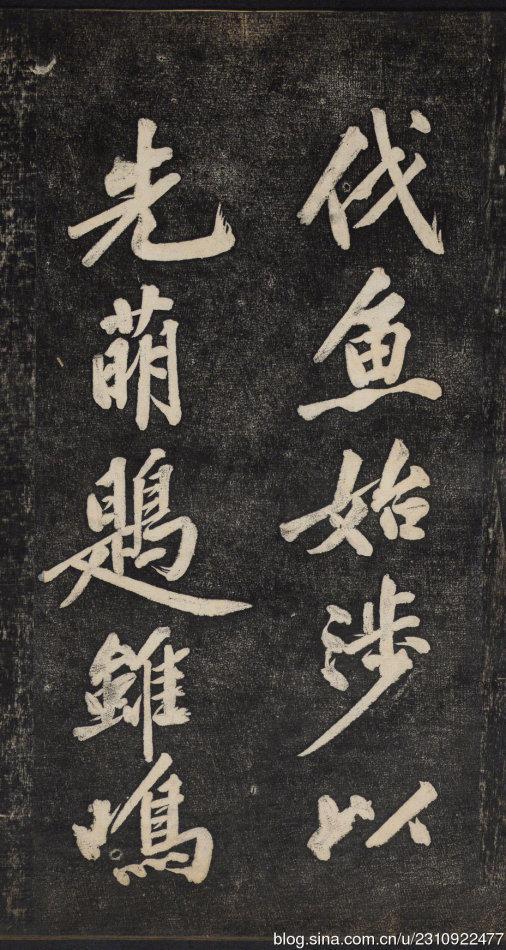 伐鱼始涉以
先萌鶗雖鳴
blog.sina.com.cn/u/2310922477